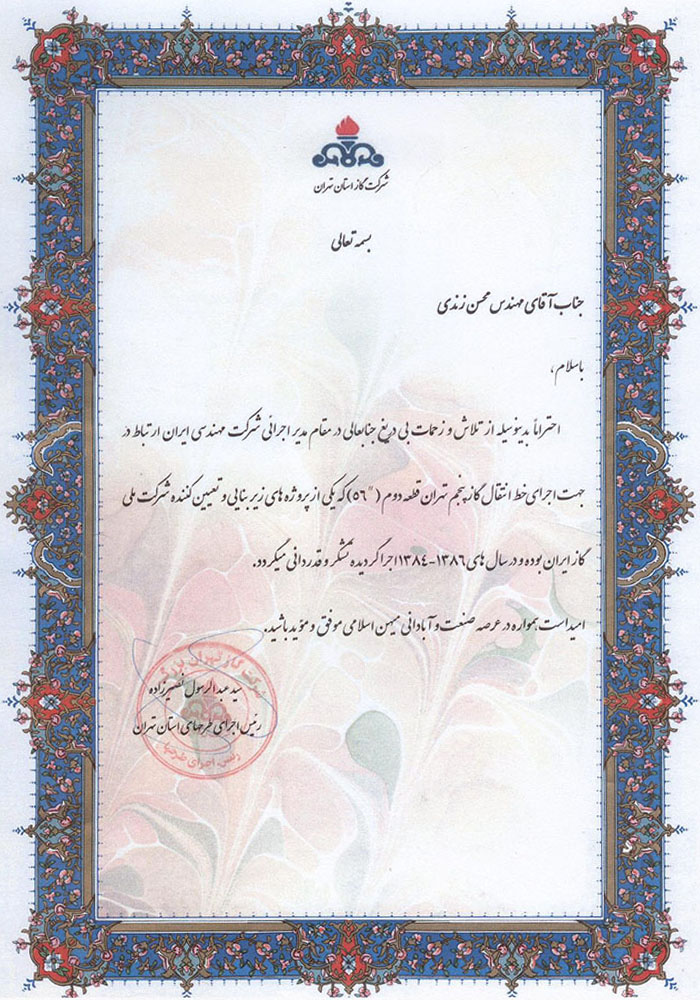 شرکت گاز استان تهران
بسمه تعالی
جناب آقای مهندس محسن زندی
باسلام ،
احتراماً بدینوسیله از تلاش و زحمات بی دریغ جنابعالی در مقام مدیر اجرائی شرکت مهندسی ایران ارتباط در
جهت اجرای خط انتقال گاز پنجم تهران قطعه دوم ( "۵۶) که یکی از پروژه های زیر بنایی و تعیین کننده شرکت ملی
گاز ایران بوده و در سال های ۱۳۸۶-۱۳۸۴ اجرا گردیده تشکر و قدردانی میگردد.
امید است همواره در عرصه صنعت و آبادانی میهن اسلامی موفق و مؤید باشید.
شرکت گاز تهران بزرگ
سید عبدالرسول نصیرزاده
رئیس اجرای طرحهای استان تهران
رئیس اجرای طرحها